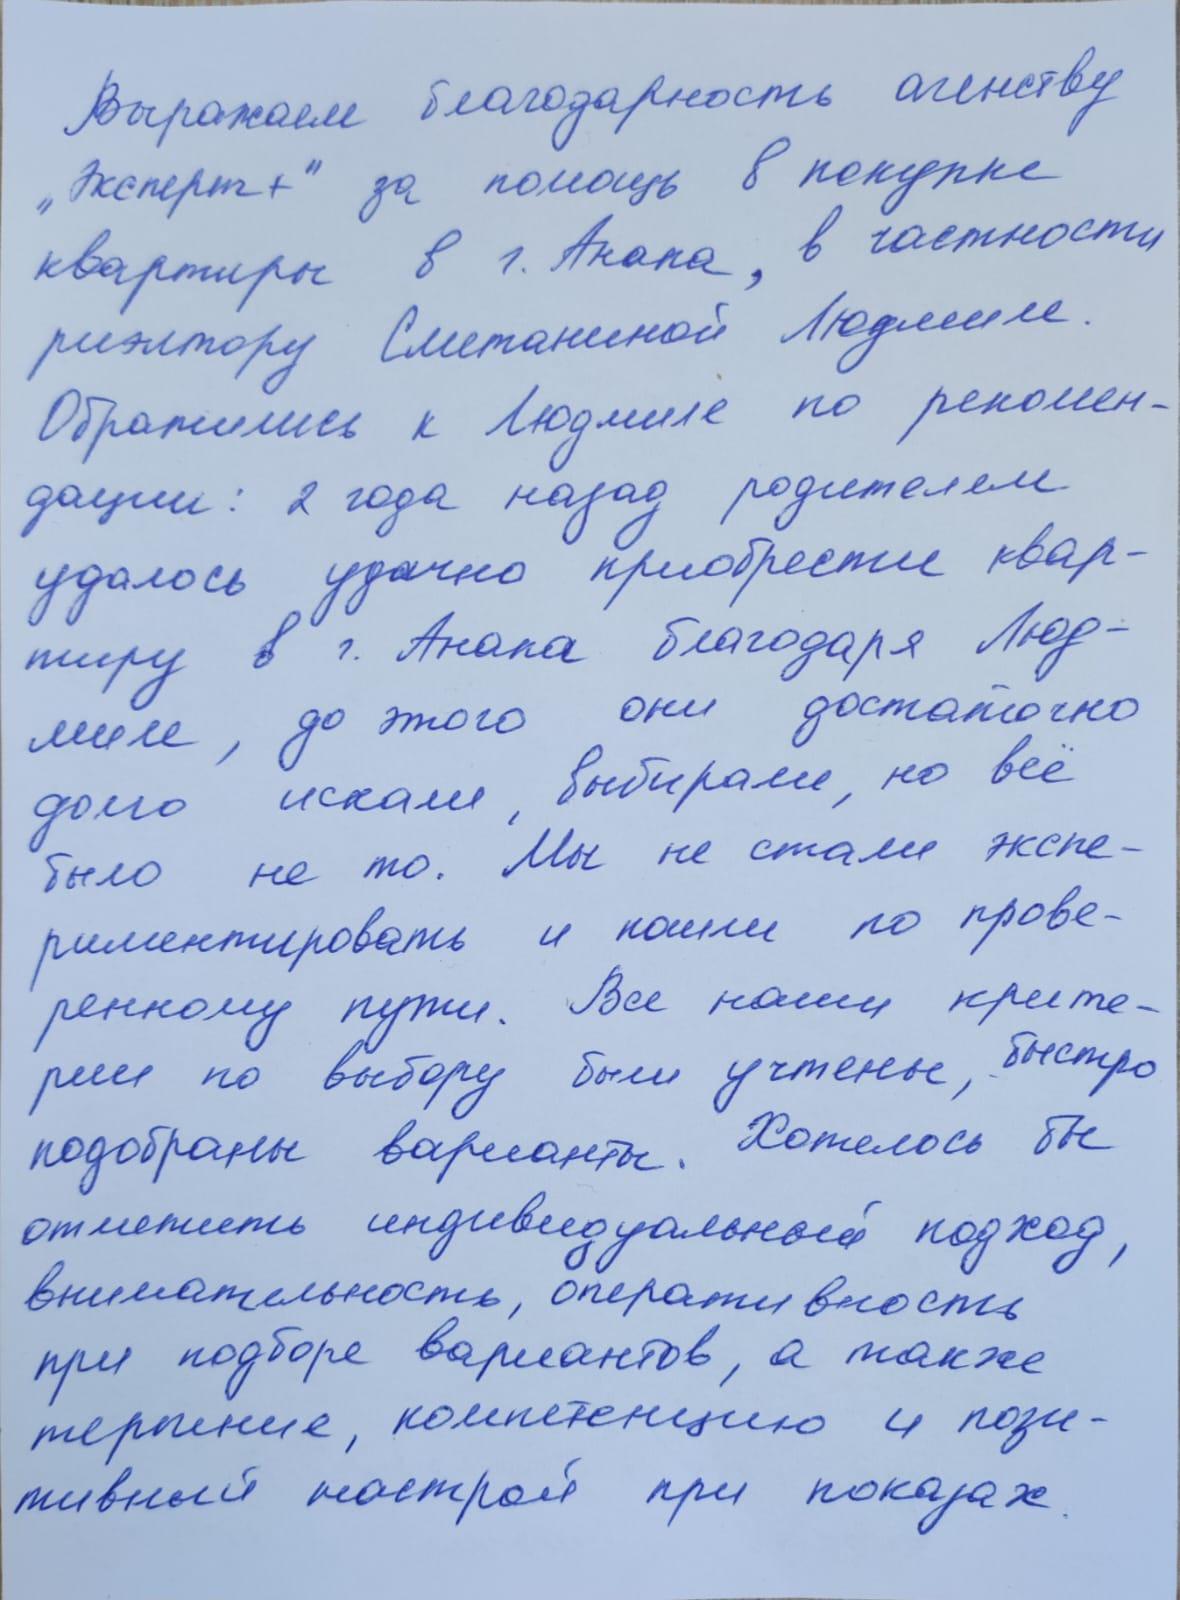 Выражаем благодарность агенству
„Эксперт+" за помощь в покупке
квартиры в г. Анапа, в частности
риэлтору Сметаниной Людмиле.
Обратились к Людмиле по рекомен-
дации: 2 года назад родителем
удалось удачно приобрести квар-
тиру в г. Анапа благодаря Люд-
миле, до этого они достаточно
долго искали, выбирали, но всё
было не то. Мы не стали экспе-
риментировать и пошли по прове-
ренному пути. Все наши крите-
рии по выбору были учтены, быстро
подобраны варианты. Хотелось бы
отметить индивидуальный подход,
внимательность, оперативность
при подборе вариантов, а также
терпение, компетенцию и пози-
тивный настрой при показах.